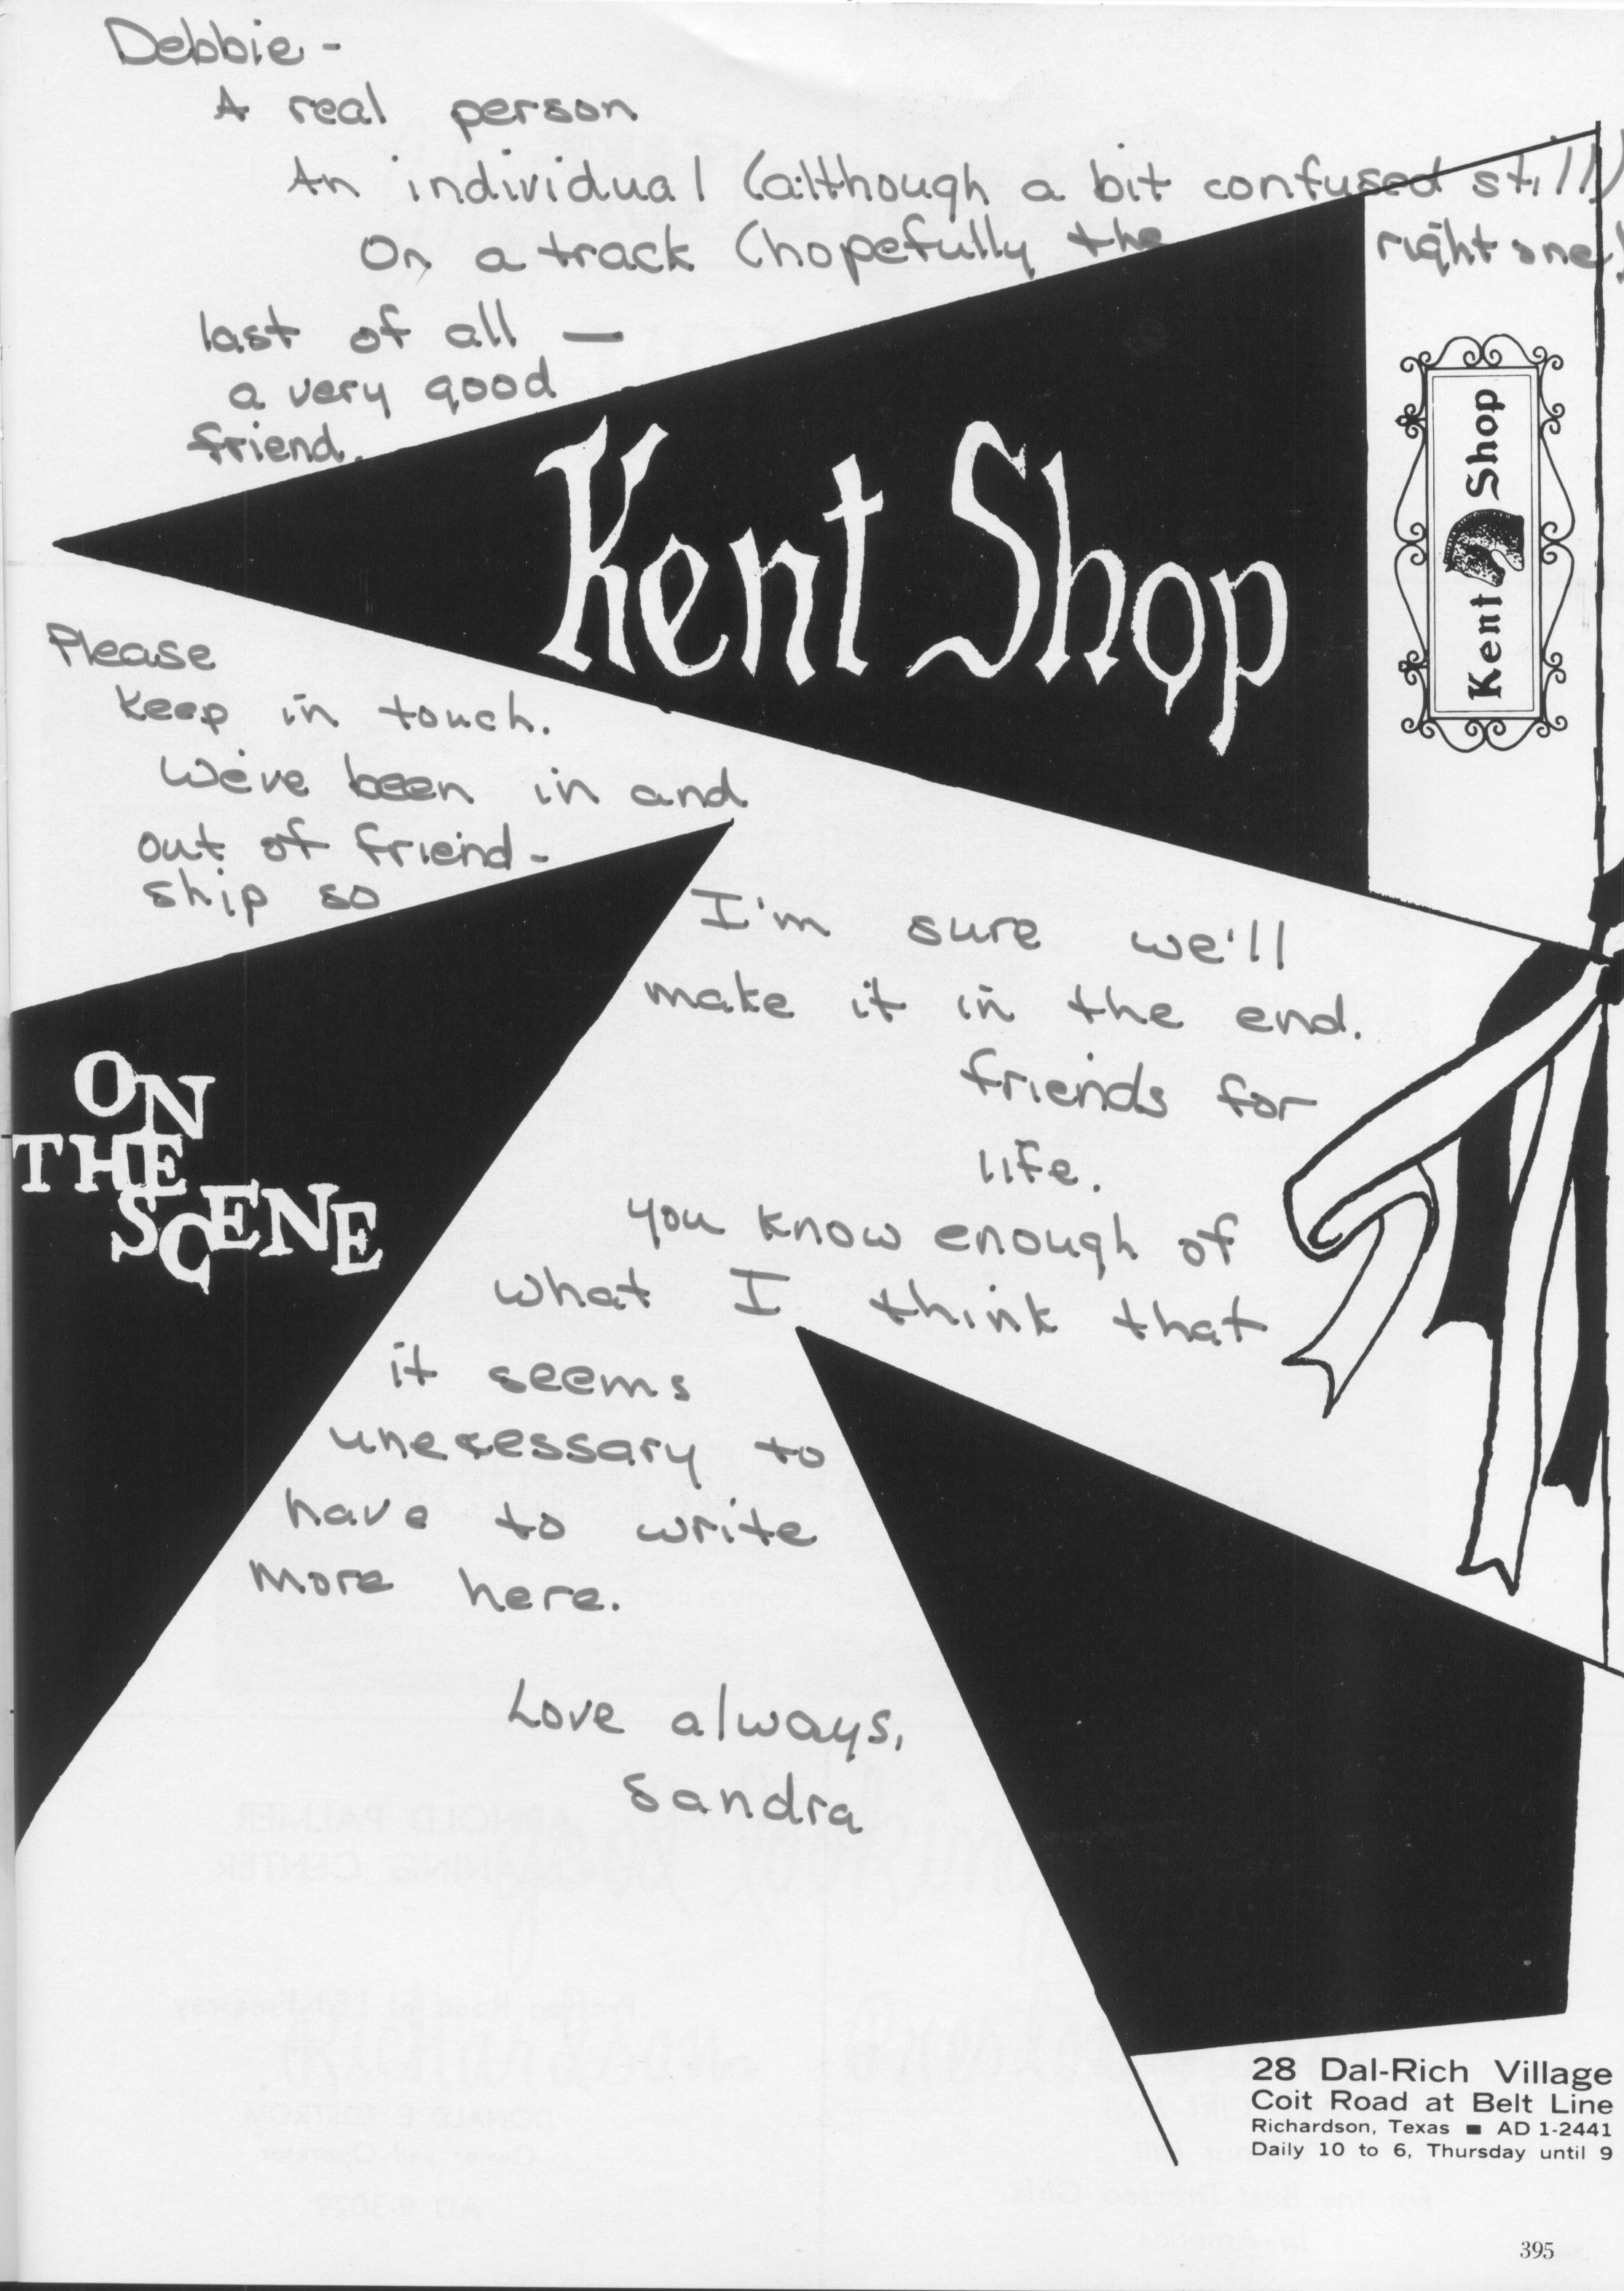 Debbie -
A real person
An individual (although a bit confused still)
On a track (hopefully the right one!
last of all —
a very good
friend.
Kent Shop
Kent Shop
Please
keep in touch.
We've been in and
out of friend-
ship so
I'm sure we'll
make it in the end.
friends for
life.
you know enough of
what I think that
it seems
unecessary to
have to write
more here.
Love always,
Sandra
ON
THE
SCENE
28 Dal-Rich Village
Coit Road at Belt Line
Richardson, Texas ■ AD 1-2441
Daily 10 to 6, Thursday until 9
395